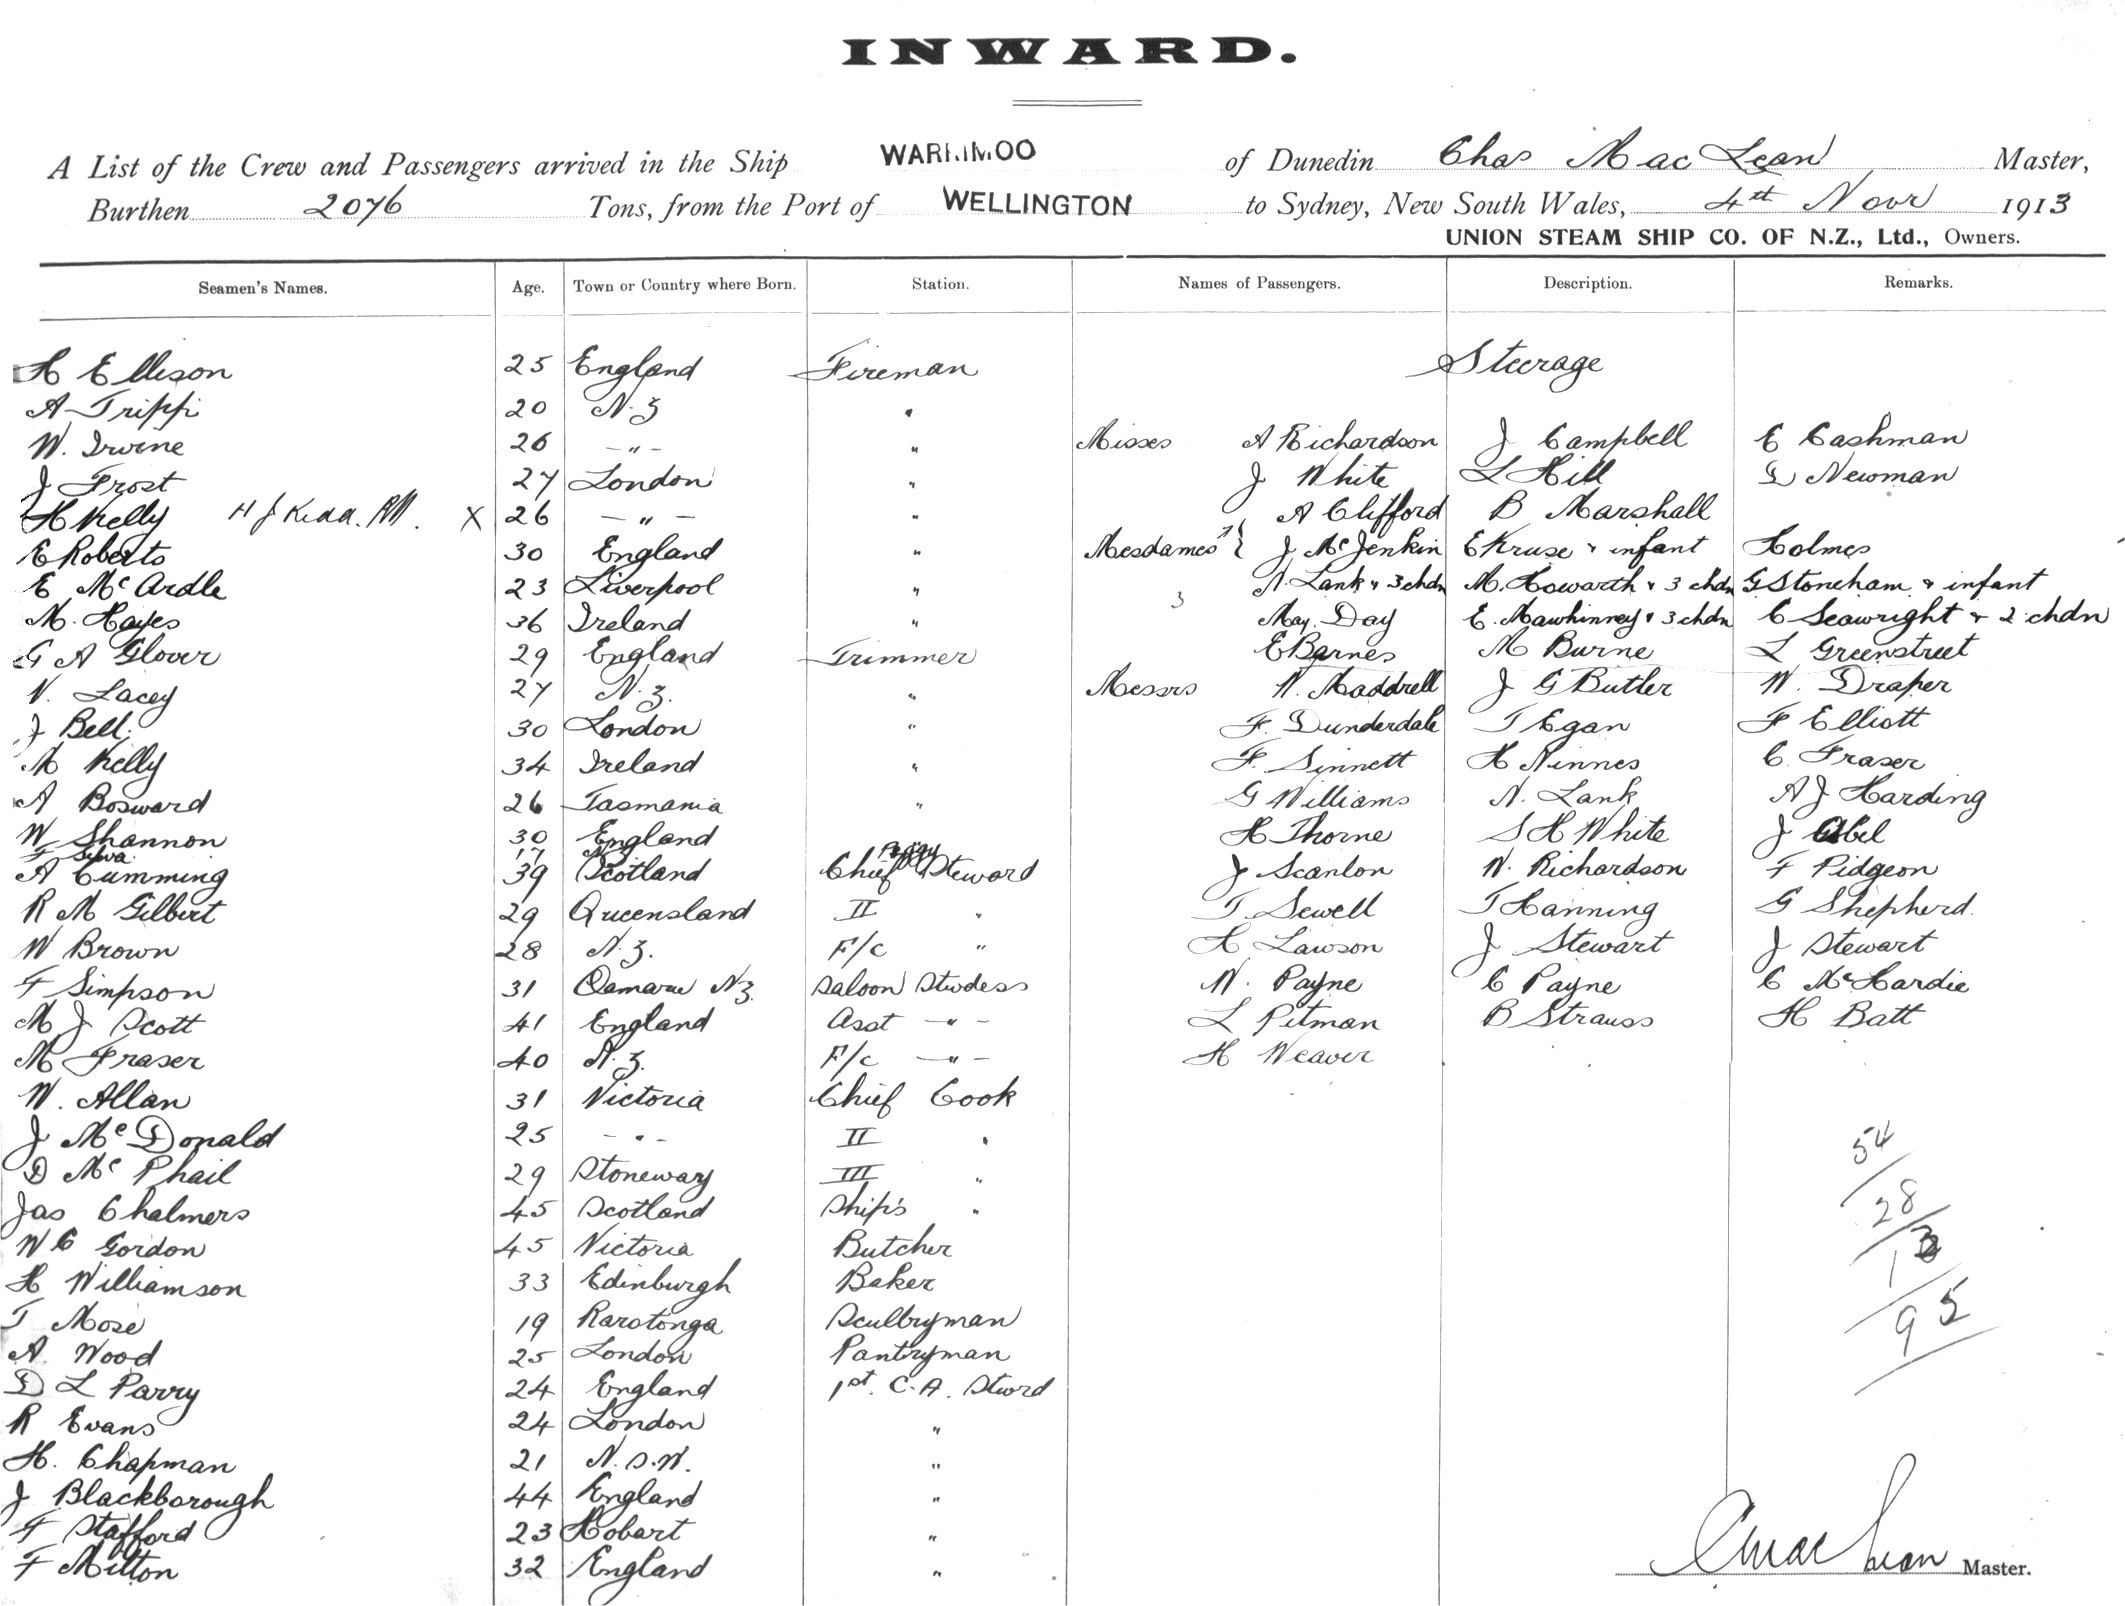 INWARD.
A List of the Crew and Passengers arrived in the Ship WARRIMOO of Dunedin Chas MacLean Master,
Burthen 2076 Tons, from the Port of WELLINGTON to Sydney, New South Wales, 4th Novr 1913
UNION STEAM SHIP CO. OF N.Z., Ltd., Owners.
Seamen's Names. Age. Town or Country where Born. Station. Names of Passengers. Description. Remarks.
H Ellison 25 England Fireman Steerage
A Trippi 20 N.Z "
W. Irvine 26 -"- " Misses A Richardson J Campbell E Cashman
J Frost 27 London " J White L Hill D Newman
H Kelly H J Kidd. RM. X 26 -"- " A Clifford B Marshall
E Roberts 30 England " Mesdames J McJenkin E Kruse & infant Holmes
E McArdle 23 Liverpool " N. Lank & 3 chdn M. Howarth & 3 chdn G Stoneham & infant
M. Hayes 36 Ireland " 3 May Day E. Mawhinney & 3 chdn C Seawright & 2 chdn
G A Glover 29 England Trimmer E Barnes M Burne L Greenstreet
V. Lacey 27 N.Z. " Messrs W. Maddrell J G Butler W. Draper
J Bell. 30 London " F. Dunderdale T Egan F Elliott
M Kelly 34 Ireland " F. Sinnett H Ninnes C. Fraser
A Bosward 26 Tasmania " G Williams N. Lank A J Harding
W Shannon 30 England H Thorne S H White J Abel
F Silva 17 Peggy
A Cumming 39 Scotland Chief Steward J Scanlon W. Richardson F Pidgeon
R M Gilbert 29 Queensland II " T Sewell T Hanning G Shepherd.
W Brown 28 N.Z. F/c " H Lawson J Stewart J Stewart
F Simpson 31 Oamaru NZ. Saloon Stwdess W. Payne C Payne C McHardie
M J Scott 41 England Asst -"- L Pitman B Strauss H Batt
M Fraser 40 N.Z. F/c -"- H Weaver
W. Allan 31 Victoria Chief Cook
J McDonald 25 -"- II " 54
D McPhail 29 Stoneway III "
Jas Chalmers 45 Scotland Ship's " 28
W C Gordon 45 Victoria Butcher 13
H Williamson 33 Edinburgh Baker
T Mose 19 Rarotonga Scullryman 95
A. Wood 25 London Pantryman
D L Parry 24 England 1st. C.A. Stwrd
R Evans 24 London "
H. Chapman 21 N.S.W. "
J Blackborough 44 England "
F Stafford 23 Hobart "
F Milton 32 England " C MacLean Master.